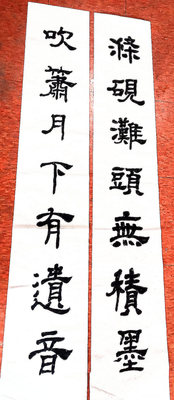 滌硯灘頭無積墨
吹簫月下有遺音